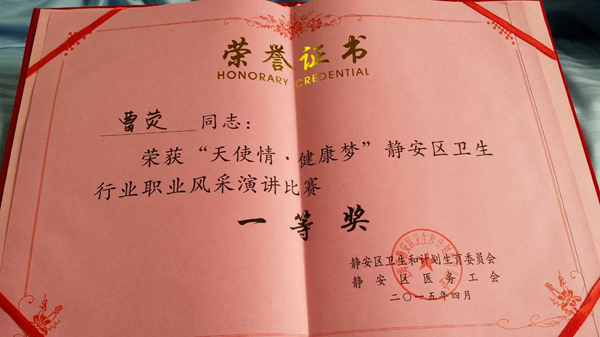 荣誉证书
HONORARY CREDENTIAL
曹荧 同志：
荣获“天使情·健康梦”静安区卫生
行业职业风采演讲比赛
一等奖
静安区卫生和计划生育委员会
静安区医务工会
二〇一五年四月